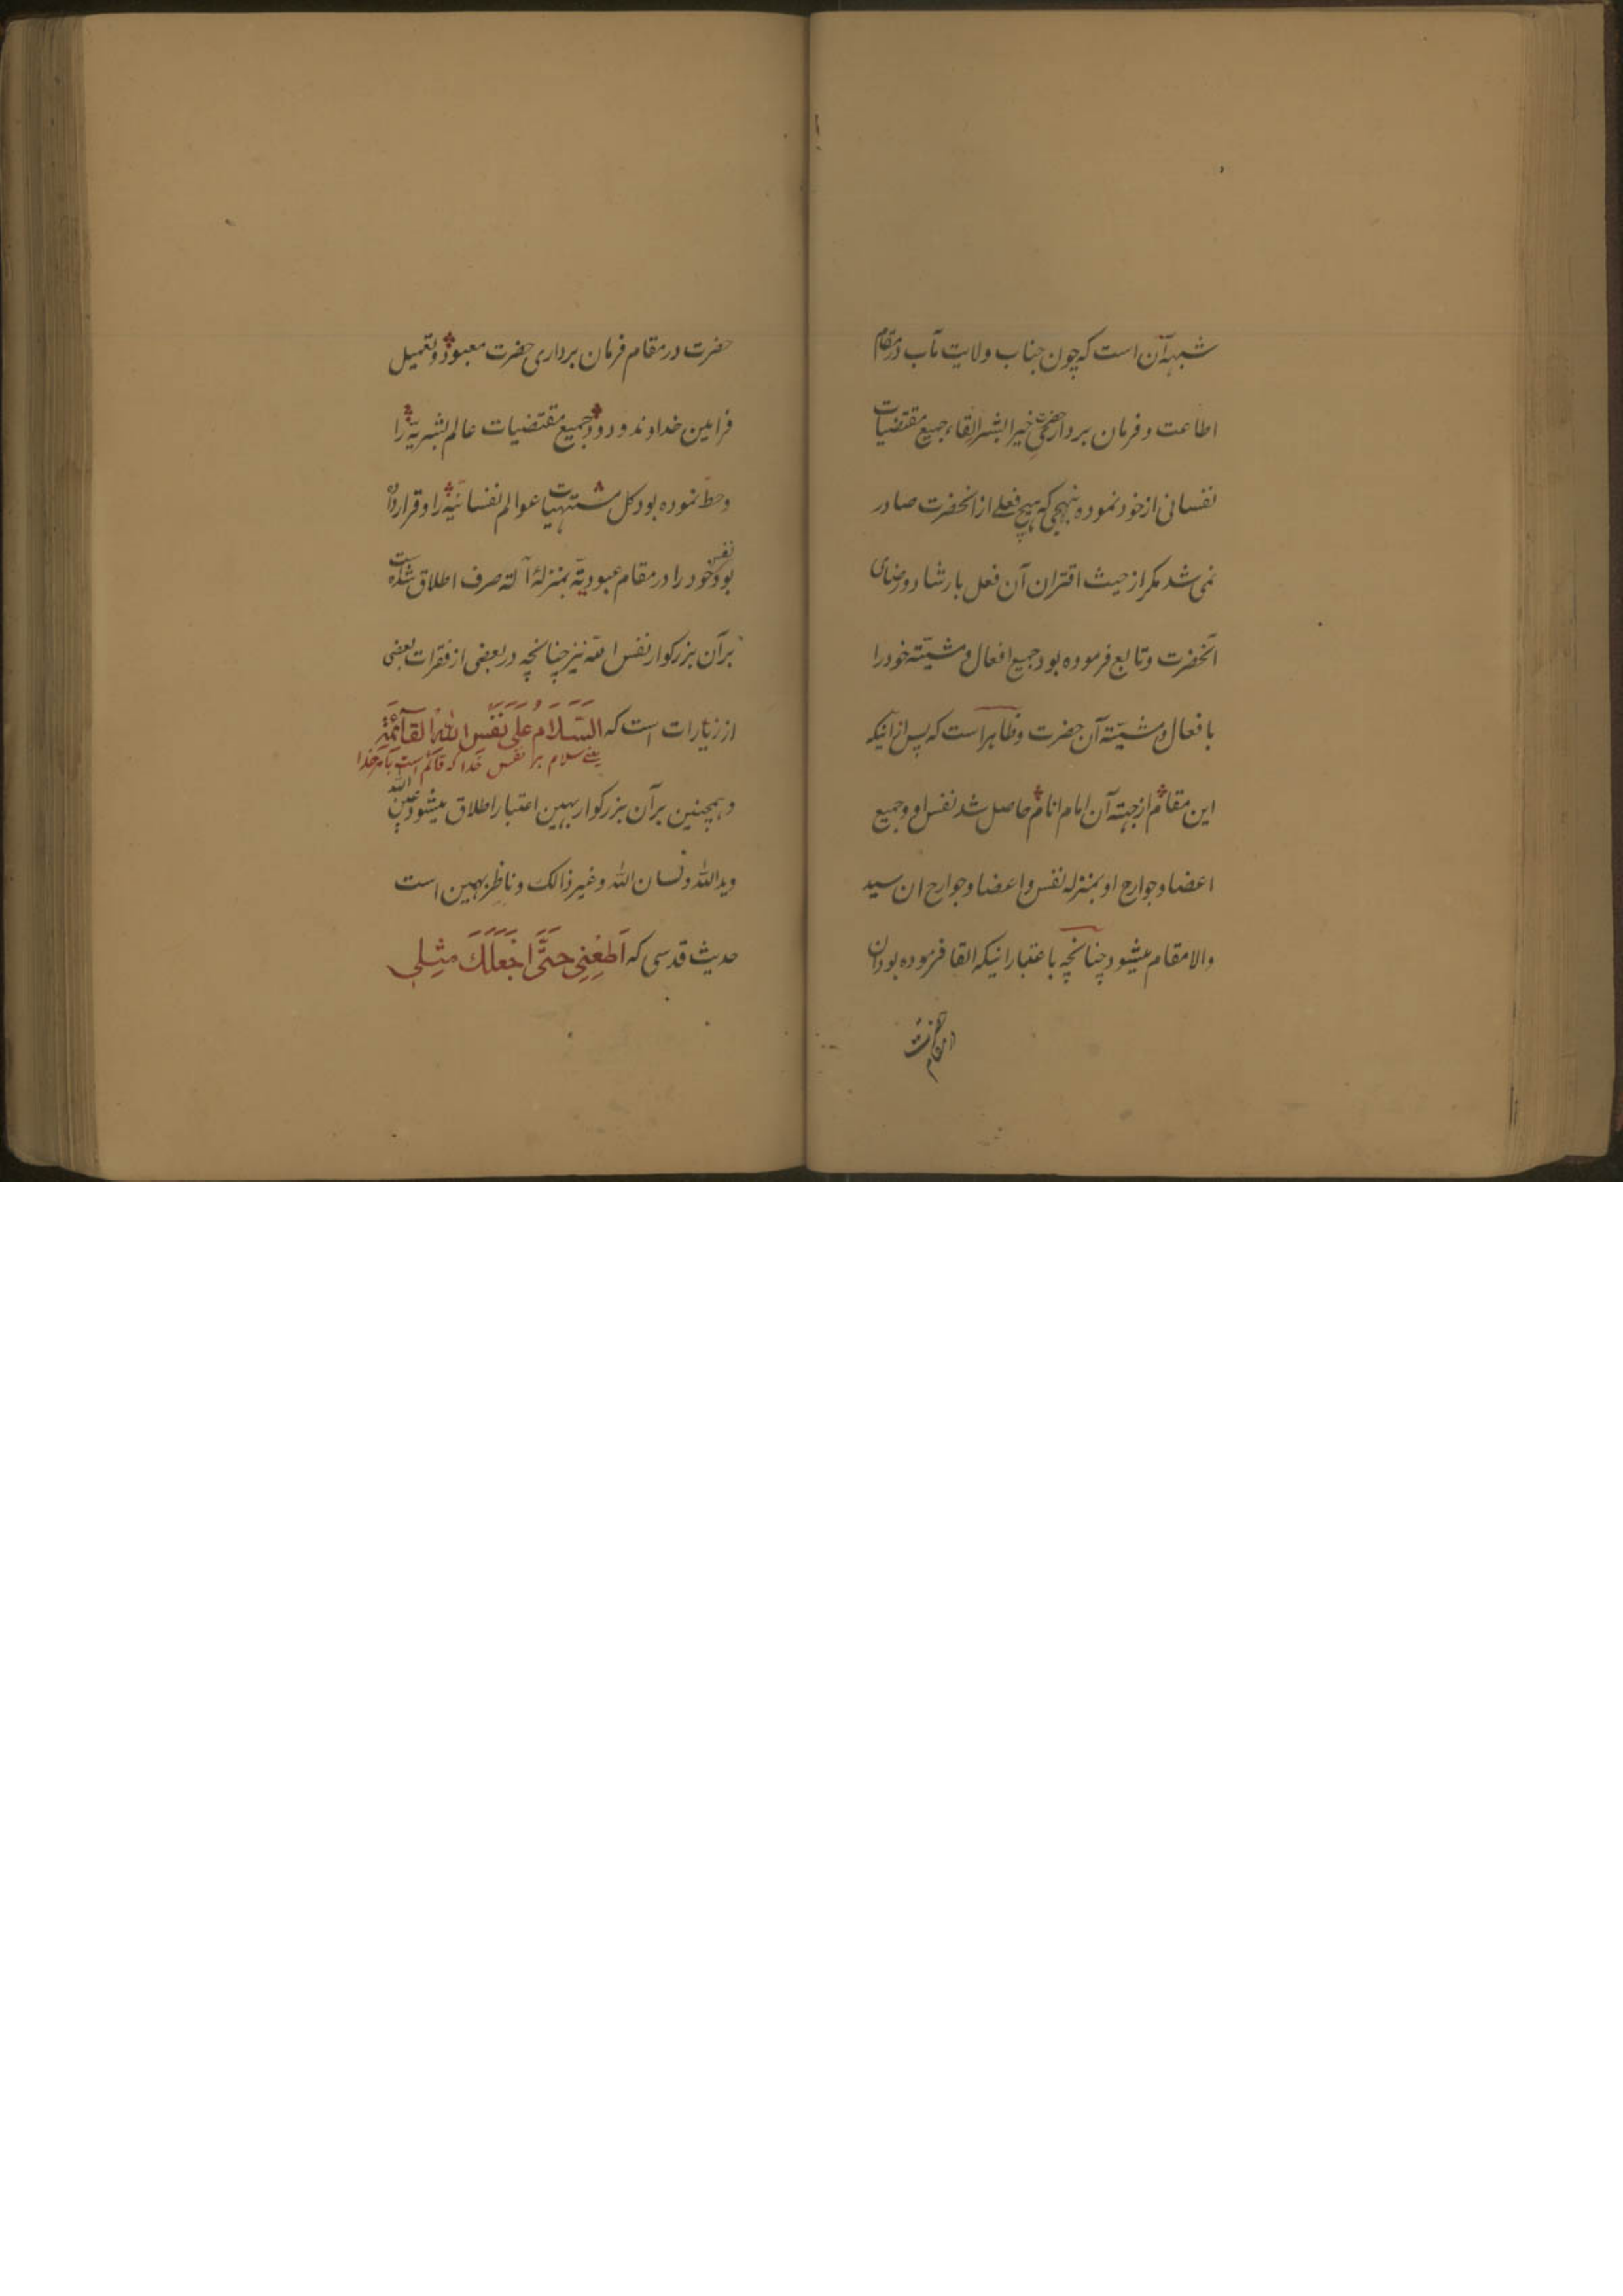 شبهه آن است که چون جناب ولایت مآب در مقام
اطاعت و فرمان بردار حضرت خیر البشر القاء جمیع مقتضیات
نفسانی از خود نموده بنهجی که هیچ فعلی از انحضرت صادر
نمی شد مکر از حیث اقتران آن فعل بارشاد و رضای
آنحضرت و تابع فرموده بود جمیع افعال و مشیّته خود را
بافعال و مشیّته آن حضرت و ظاهر است که پس از آنیکه
این مقام از جهته آن امام انام حاصل شد نفس او و جمیع
اعضا و جوارح او بمنزله نفس و اعضا و جوارح ان سید
والا مقام میشود چنانچه باعتبار انیکه القا فرموده بود ان
حضرت در مقام فرمان برداری حضرت معبود و تعمیل
فرامین خداوند ودود جمیع مقتضیات عالم بشریّة را
و حطّ نموده بود کل مشتهیات عوالم نفسانیّة را و قرار داده
بود نفس خود را در مقام عبودیّة بمنزلهٔ آلة صرف اطلاق شده است
بر آن بزرکوار نفس الله نیز چنانچه در بعضی از فقرات بعضی
از زیارات است که السَّلامُ عَلی نَفْسِ اللهِ القآئِمَةِ
یعنی سلام بر نفس خدا که قائم است بامر خدا
و همچنین بر آن بزرکوار بهمین اعتبار اطلاق میشود عین الله
و ید الله و لسان الله و غیر ذالک و ناظر بهمین است
حدیث قدسی که اَطِعْنِی حَتَّی اَجْعَلَکَ مَثَلِی